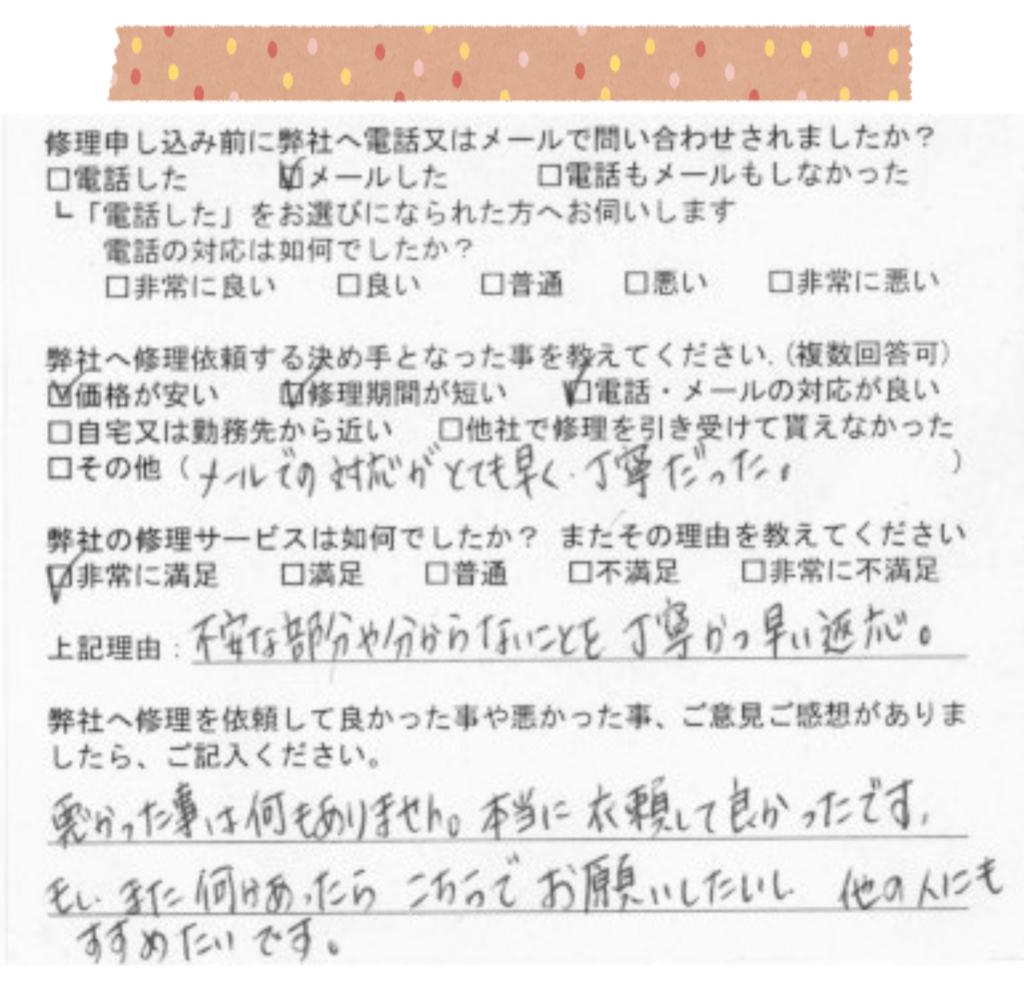 修理申し込み前に弊社へ電話又はメールで問い合わせされましたか？
□電話した ☑メールした □電話もメールもしなかった
┗「電話した」をお選びになられた方へお伺いします
電話の対応は如何でしたか？
□非常に良い □良い □普通 □悪い □非常に悪い
弊社へ修理依頼する決め手となった事を教えてください.（複数回答可）
☑価格が安い ☑修理期間が短い ☑電話・メールの対応が良い
□自宅又は勤務先から近い □他社で修理を引き受けて貰えなかった
□その他（メールでの対応がとても早く、丁寧だった。）
弊社の修理サービスは如何でしたか？ またその理由を教えてください
☑非常に満足 □満足 □普通 □不満足 □非常に不満足
上記理由：不安な部分や分からないことを丁寧かつ早い返応。
弊社へ修理を依頼して良かった事や悪かった事、ご意見ご感想がありま
したら、ご記入ください。
悪かった事は何もありません。本当に依頼して良かったです。
もし、また何かあったら こちらで お願いしたいし、他の人にも
すすめたいです。